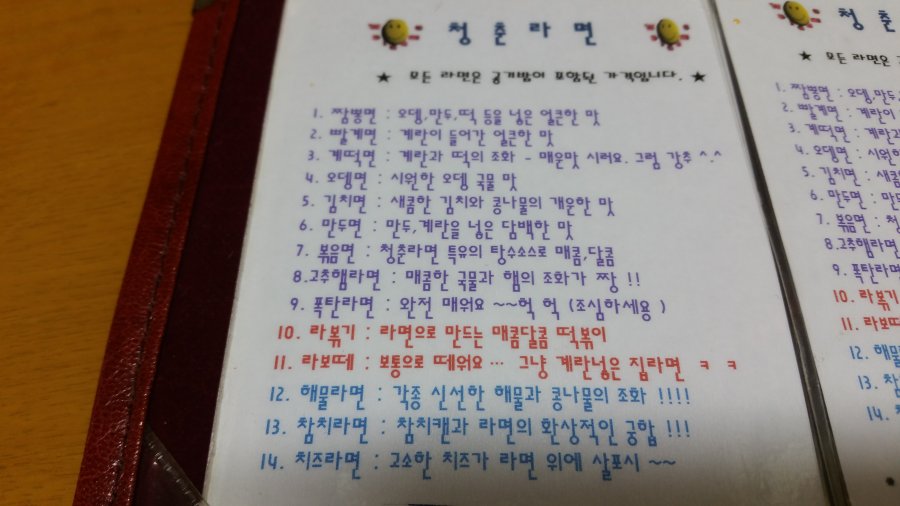 청춘라면
★ 모든 라면은 공기밥이 포함된 가격입니다. ★
1. 짬뽕면 : 오뎅,만두,떡 등을 넣은 얼큰한 맛
2. 빨계면 : 계란이 들어간 얼큰한 맛
3. 계떡면 : 계란과 떡의 조화 - 매운맛 시러요. 그럼 강추 ^.^
4. 오뎅면 : 시원한 오뎅 국물 맛
5. 김치면 : 새콤한 김치와 콩나물의 개운한 맛
6. 만두면 : 만두,계란을 넣은 담백한 맛
7. 볶음면 : 청춘라면 특유의 탕수소스로 매콤,달콤
8.고추햄라면 : 매콤한 국물과 햄의 조화가 짱 !!
9. 폭탄라면 : 완전 매워요 ~~헉 헉 (조심하세용 )
10. 라볶기 : 라면으로 만드는 매콤달콤 떡볶이
11. 라보떼 : 보통으로 떼워요 … 그냥 계란넣은 집라면 ㅋ ㅋ
12. 해물라면 : 각종 신선한 해물과 콩나물의 조화 !!!!
13. 참치라면 : 참치캔과 라면의 환상적인 궁합 !!!
14. 치즈라면 : 고소한 치즈가 라면 위에 살포시 ~~
청춘
★ 모든 라면은
1. 짬뽕면 : 오뎅,만두
2. 빨계면 : 계란이
3. 계떡면 : 계란과
4. 오뎅면 : 시원한
5. 김치면 : 새콤
6. 만두면 : 만두
7. 볶음면 : 청
8.고추햄라면
9. 폭탄라면
10. 라볶기
11. 라보떼
12. 해물
13. 참
14. 치